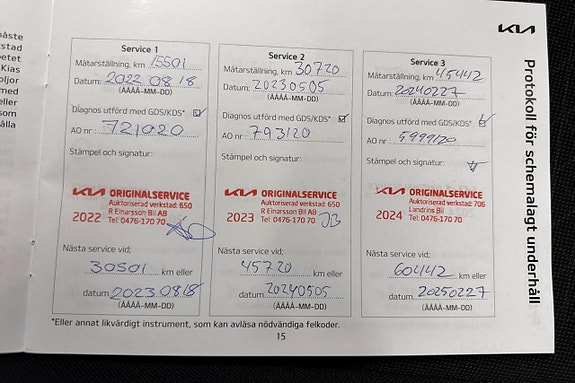 KIA
Protokoll för schemalagt underhåll
Service 1
Mätarställning, km 15501
Datum: 2022 08 18
(ÅÅÅÅ-MM-DD)
Diagnos utförd med GDS/KDS*
AO nr: 721020
Stämpel och signatur:
KIA ORIGINALSERVICE
Auktoriserad verkstad: 650
R Einarsson Bil AB
2022 Tel: 0476-170 70
Nästa service vid;
30501 km eller
datum 2023 08 18
(ÅÅÅÅ-MM-DD)
Service 2
Mätarställning, km 30720
Datum: 20230505
(ÅÅÅÅ-MM-DD)
Diagnos utförd med GDS/KDS*
AO nr: 793120
Stämpel och signatur:
KIA ORIGINALSERVICE
Auktoriserad verkstad: 650
R Einarsson Bil AB
2023 Tel: 0476-170 70
Nästa service vid;
45720 km eller
datum 20240505
(ÅÅÅÅ-MM-DD)
Service 3
Mätarställning, km 45442
Datum: 20240227
(ÅÅÅÅ-MM-DD)
Diagnos utförd med GDS/KDS*
AO nr: 5999120
Stämpel och signatur:
KIA ORIGINALSERVICE
Auktoriserad verkstad: 706
Landrins Bil
2024 Tel: 0476-170 70
Nästa service vid;
60442 km eller
datum 20250227
(ÅÅÅÅ-MM-DD)
*Eller annat likvärdigt instrument, som kan avläsa nödvändiga felkoder.
15